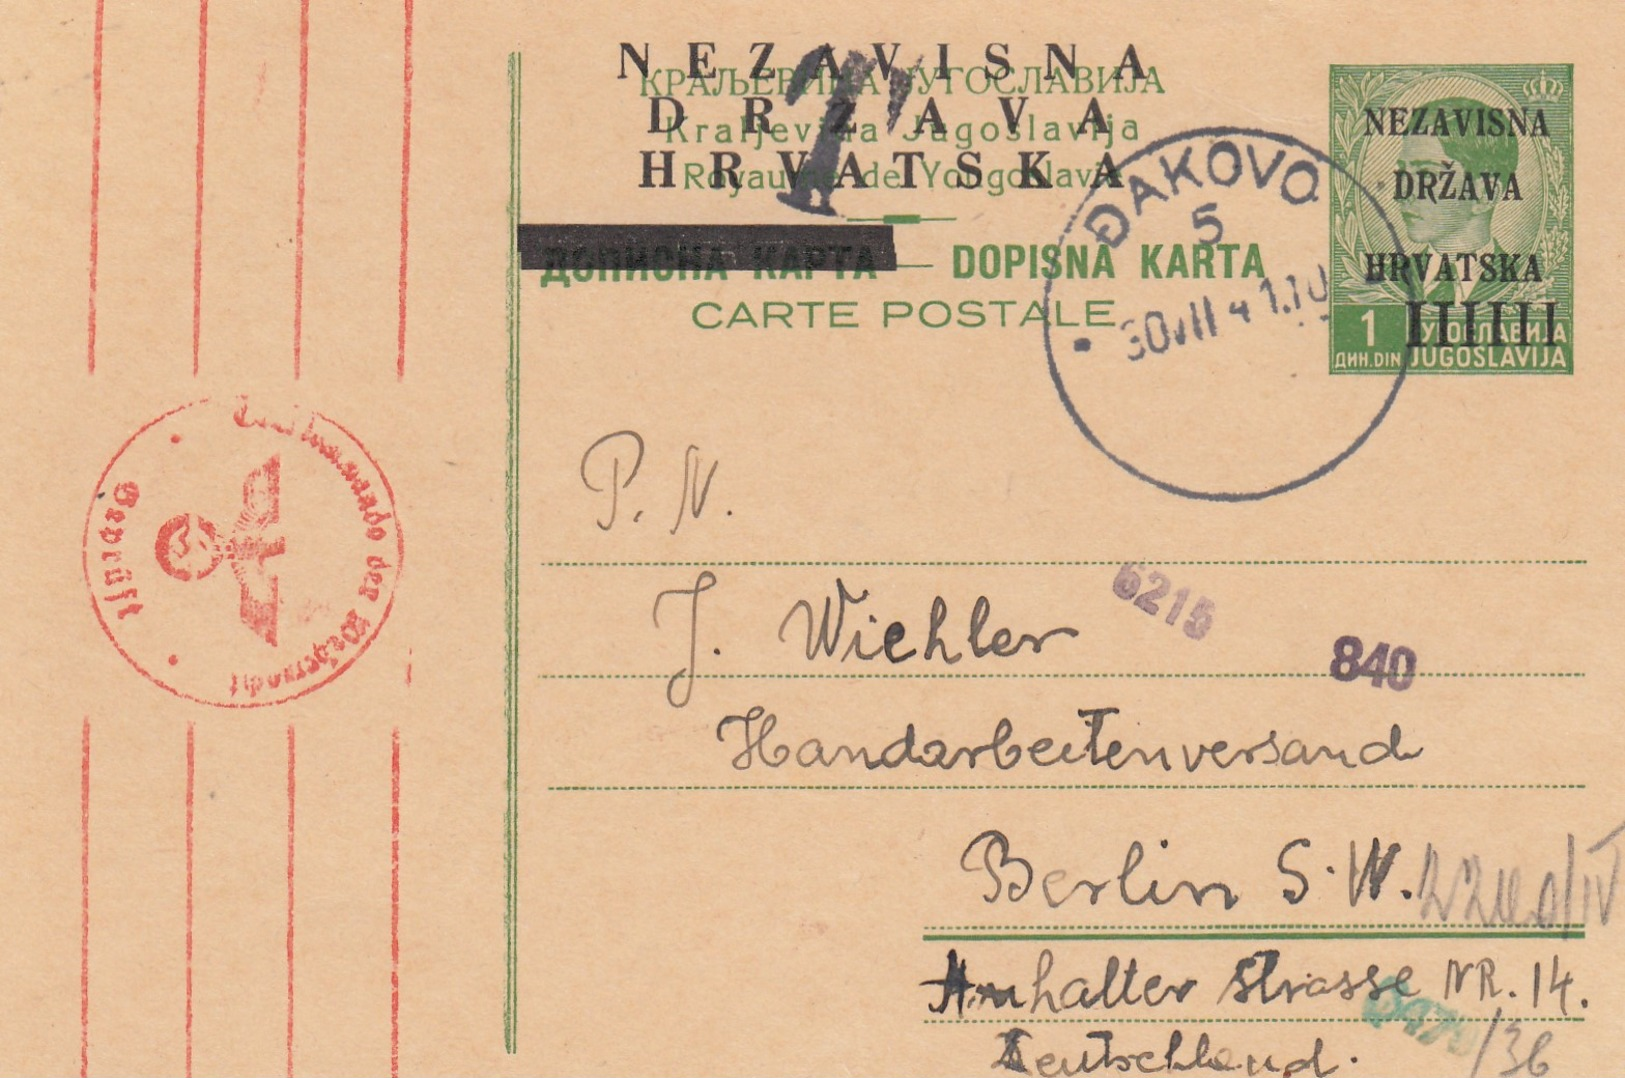 NEZAVISNA
КРАЉЕВИНА ЈУГОСЛАВИЈА
DRŽAVA
Kraljevina Jugoslavija
HRVATSKA
Royaume de Yougoslavie
ДОПИСНА КАРТА — DOPISNA KARTA
CARTE POSTALE
ĐAKOVO
5
30 VII 41.10
NEZAVISNA
DRŽAVA
HRVATSKA
1
ДИН. DIN
ЈУГОСЛАВИЈА
JUGOSLAVIJA
Oberkommando der Wehrmacht
Geprüft
P. N.
J. Wiehler
6215
840
Handarbeitenversand
Berlin S. W.
Anhalter Strasse NR. 14.
/36
Deutschland.